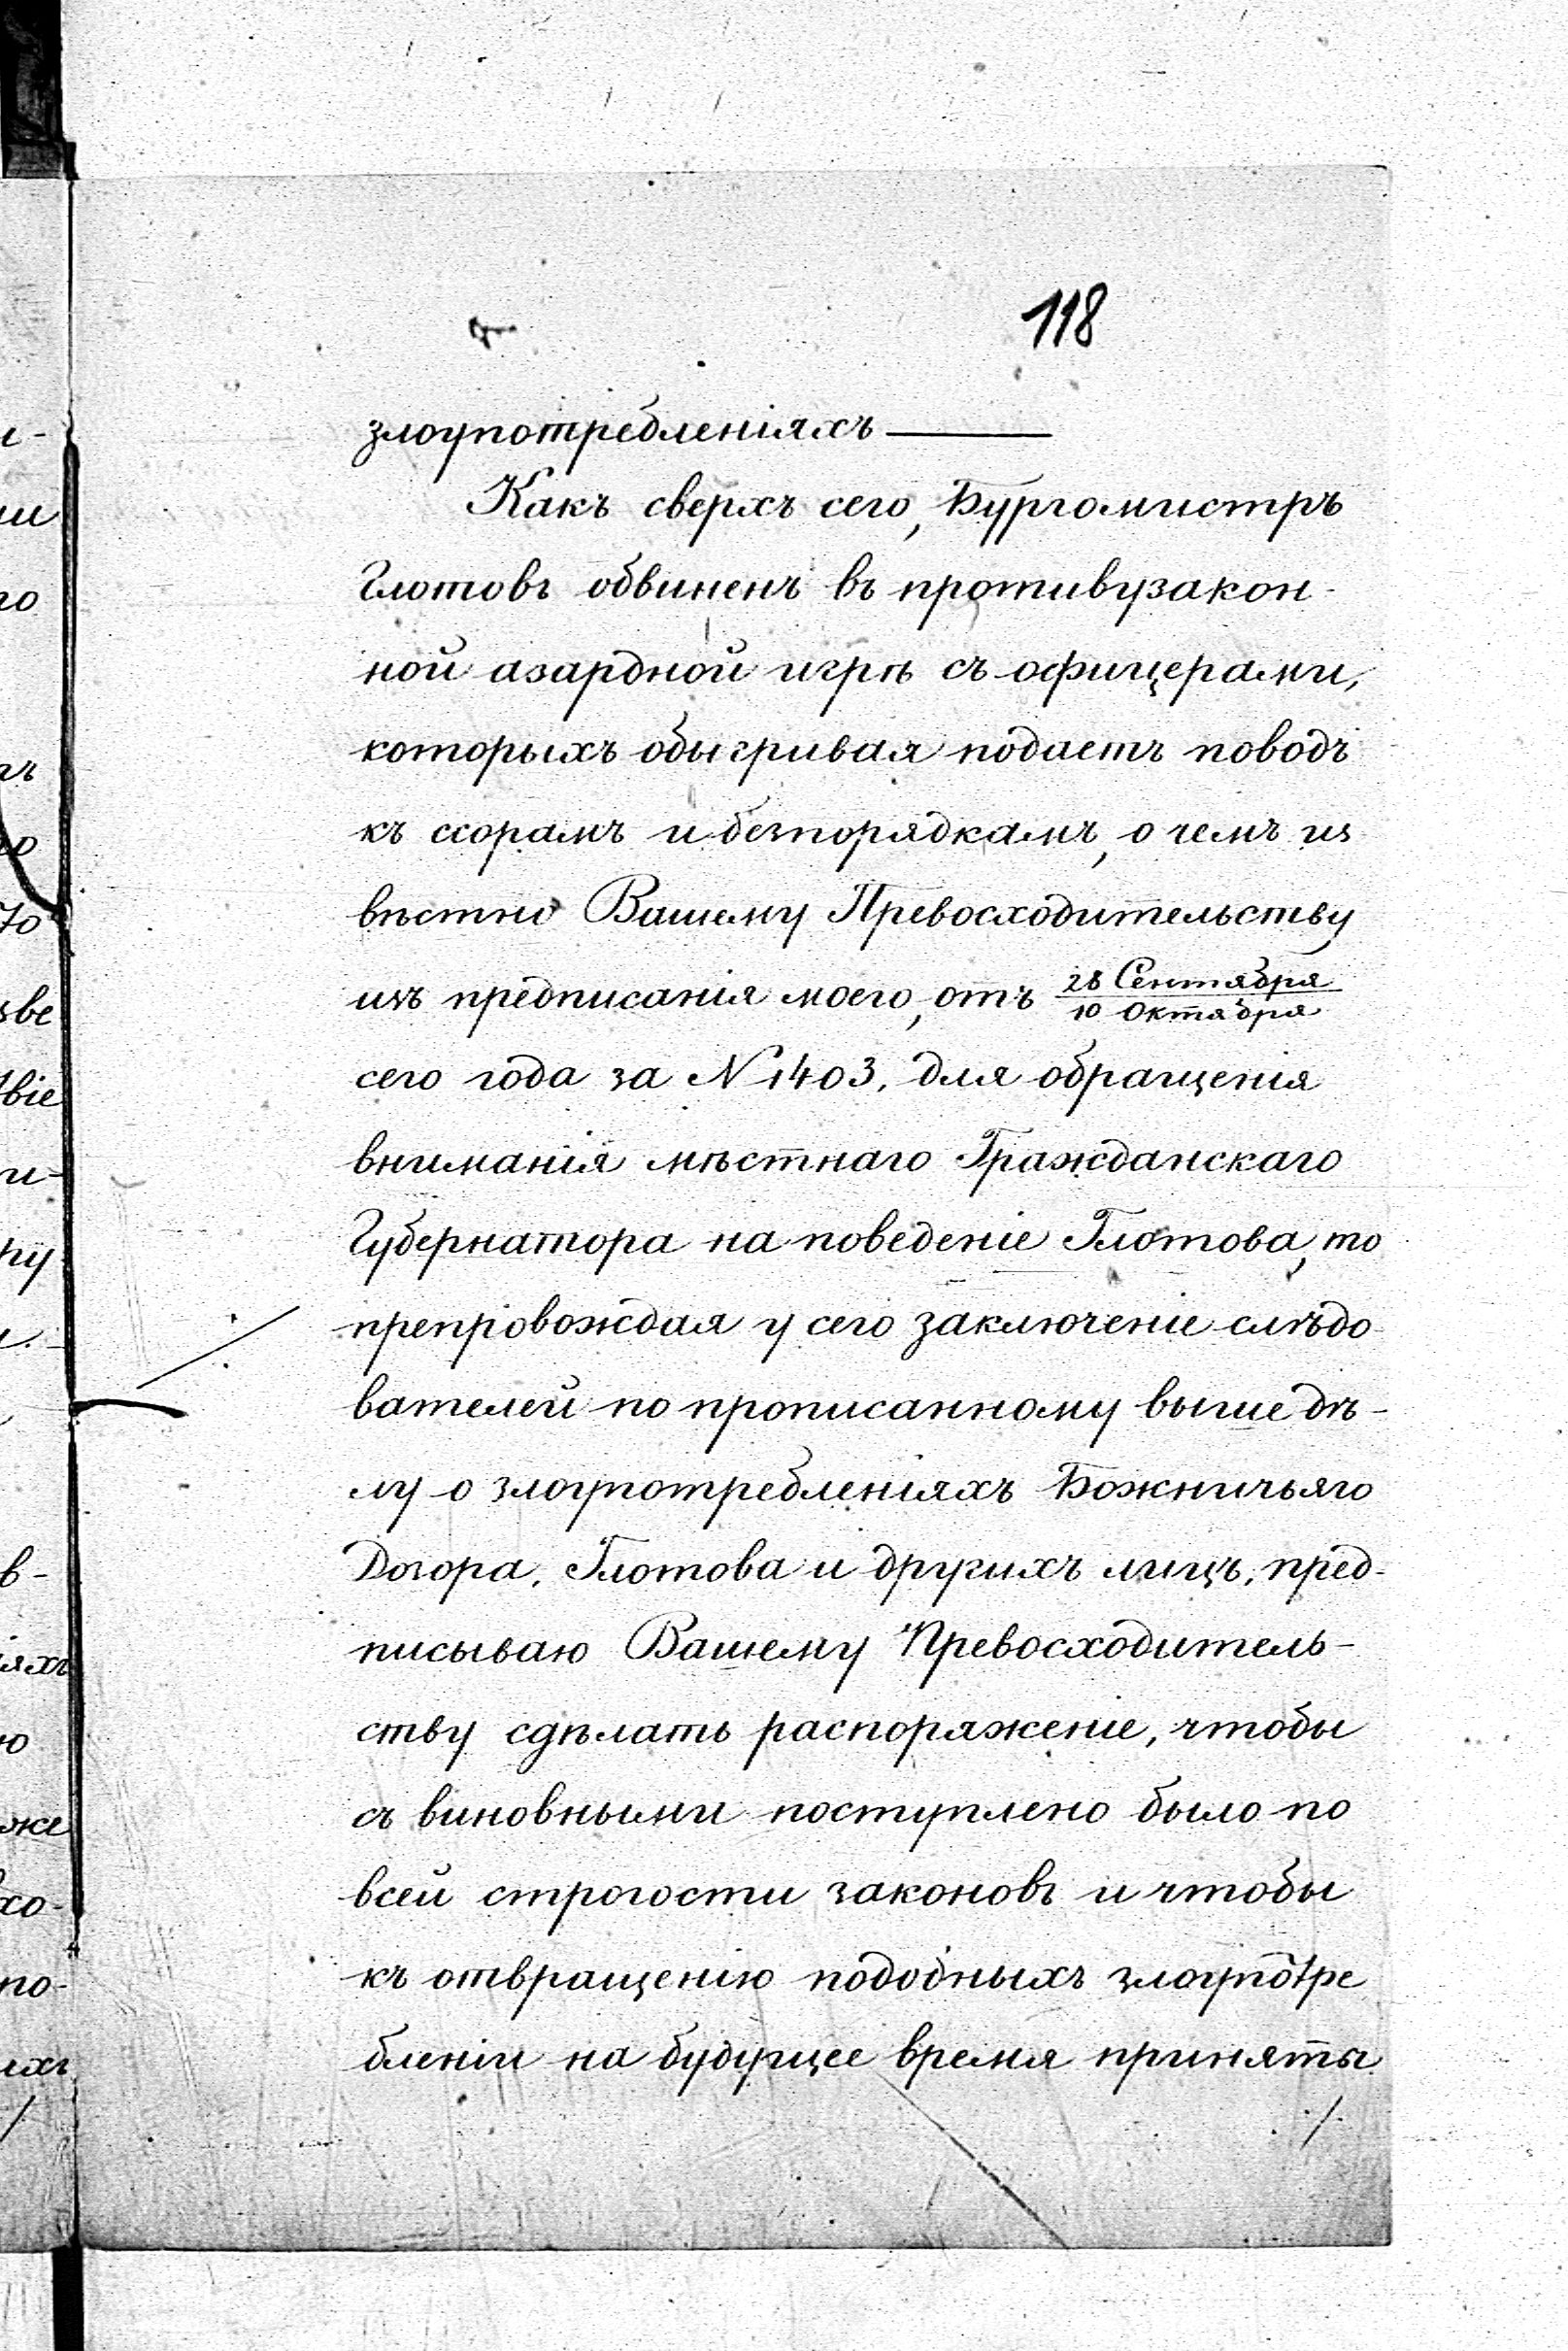 118
злоупотребленіяхъ —
Какъ сверхъ сего, Бургомистръ
Глотовъ обвиненъ въ противузакон-
ной азардной игрѣ съ офицерами,
которыхъ обыгривая подаетъ поводъ
къ ссорамъ и безпорядкамъ, о чемъ из
вѣстно Вашему Превосходительству
изъ предписанія моего, отъ 28 Сентября
10 Октября
сего года за N 1403, для обращенія
вниманія мѣстнаго Гражданскаго
Губернатора на поведеніе Глотова, то
препровождая у сего заключеніе слѣдо
вателей по прописанному выше дѣ-
лу о злоупотребленіяхъ Божничьяго
Дозора, Глотова и другихъ лицъ, пред-
писываю Вашему Превосходитель-
ству сдѣлать распоряженіе, чтобы
съ виновными поступлено было по
всей строгости законовъ и чтобы
къ отвращенію подобныхъ злоупотре
бленіи на будущее время приняты
./.